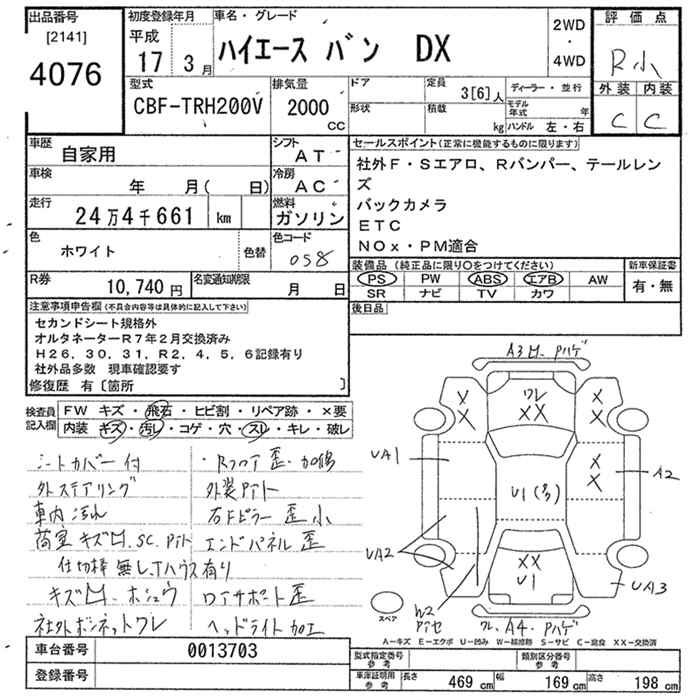 出品番号
[2141]
4076
初度登録年月
平成
17 3月
車名・グレード
ハイエース バン DX
2WD
・
4WD
評価点
R小
外装 内装
C C
型式
CBF-TRH200V
排気量
2000
CC
ドア
定員
3[6]人
形状
積載
kg
ディーラー・並行
モデル年式 年
ハンドル 左・右
車歴
自家用
シフト
AT
車検
年 月( 日)
冷房
AC
走行
24万4千661 km
燃料
ガソリン
色
ホワイト
色替
色コード
058
R券
10,740円
名変通知期限
月 日
セールスポイント(正常に機能するものに限ります)
社外F・Sエアロ、Rバンパー、テールレン
ズ
バックカメラ
ETC
NOx・PM適合
装備品 (純正品に限り○をつけてください)
PS PW ABS エアB AW
SR ナビ TV カワ
新車保証書
有・無
後日品
注意事項申告欄(不具合内容等は具体的に記入して下さい)
セカンドシート規格外
オルタネーターR7年2月交換済み
H26、30、31、R2、4、5、6記録有り
社外品多数 現車確認要す
修復歴 有〔箇所 〕
検査員
記入欄
FW キズ・飛石・ヒビ割・リペア跡・×要
内装 キズ・汚レ・コゲ・穴・スレ・キレ・破レ
シートカバー付
外ステアリング
車内汚れ
荷室キズ凹、SC、Pイト
仕切棒無し、Tハウス有り
キズ凹、ホシュウ
社外ボンネットワレ
・Rフロア歪・加修
外装Pイト
右Fピラー歪小
エンドパネル歪
ロアサポート歪
ヘッドライト加工
A3凹、Pハゲ
ワレ
XX
X
X
X
X
X
X
UA1
A2
U1(多)
UA2
XX
U1
UA3
W2
Pイセ
ワレ、A4、Pハゲ
スペア
A-キズ E-エクボ U-凹み W-補修跡 S-サビ C-腐食 XX-交換済
車台番号
0013703
登録番号
型式指定番号
参考
類別区分番号
参考
車庫証明用
参考
長さ 469cm 幅 169cm 高さ 198cm